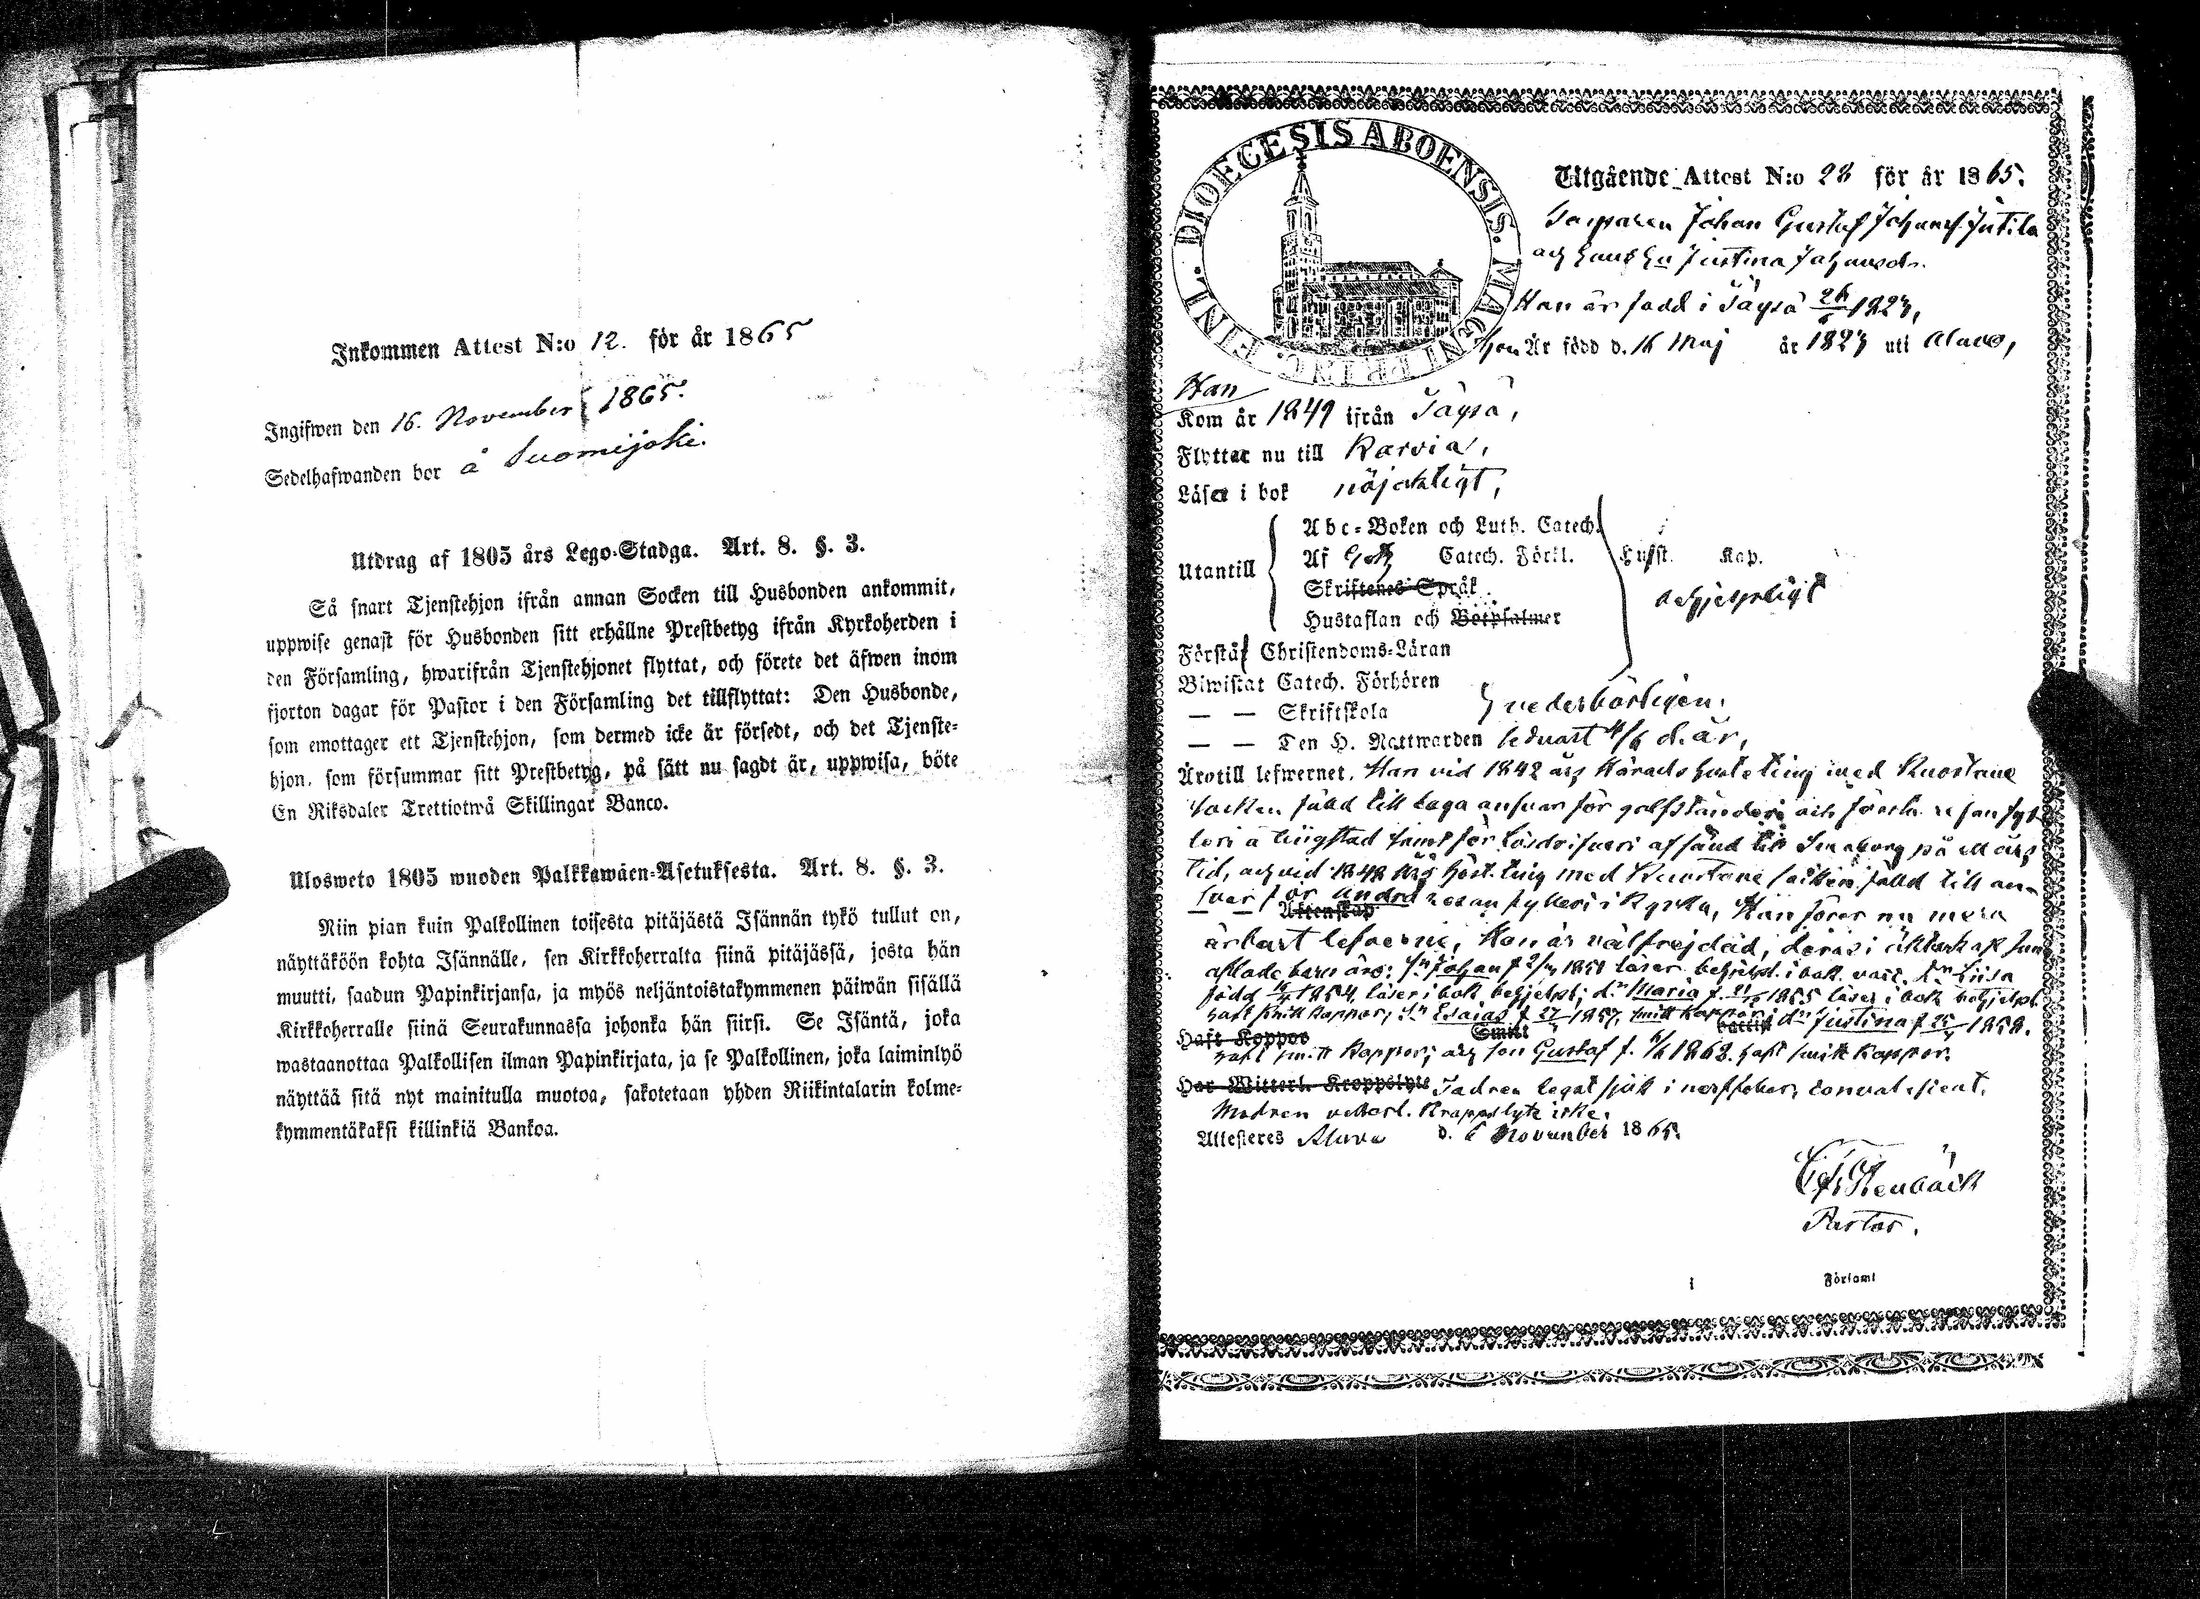 Inkommen Attest N:o 12. för år 1865
Ingifwen den 16. November 1865.
Sedelhafwanden bor å Suomijoki.
Utdrag af 1805 års Lego-Stadga. Art. 8. §. 3.
Så snart Tjenstehjon ifrån annan Socken till Husbonden ankommit,
uppwise genast för Husbonden sitt erhållne Prestbetyg ifrån Kyrkoherden i
den Församling, hwarifrån Tjenstehjonet flyttat, och förete det äfwen inom
fjorton dagar för Pastor i den Församling det tillflyttat: Den Husbonde,
som emottager ett Tjenstehjon, som dermed icke är försedt, och det Tjenste-
hjon, som försummar sitt Prestbetyg, på sätt nu sagdt är, uppwisa, böte
En Riksdaler Trettiotwå Skillingar Banco.
Ulosweto 1805 wuoden Palkkawäen-Asetuksesta. Art. 8. §. 3.
Niin pian kuin Palkollinen toisesta pitäjästä Isännän tykö tullut on,
näyttäköön kohta Isännälle, sen Kirkkoherralta siinä pitäjässä, josta hän
muutti, saadun Papinkirjansa, ja myös neljäntoistakymmenen päiwän sisällä
Kirkkoherralle siinä Seurakunnassa johonka hän siirsi. Se Isäntä, joka
wastaanottaa Palkollisen ilman Papinkirjata, ja se Palkollinen, joka laiminlyö
näyttää sitä nyt mainitulla muotoa, sakotetaan yhden Riikintalarin kolme-
kymmentäkaksi killinkiä Bankoa.
DIOECESIS ABOENSIS. MAGNI PRINC. FINL.
Utgående Attest N:o 28 för år 1865.
Johan Gustaf Johansf. Jutila
och hans Hu Justina Johansdr.
Han är född i Töysä 1823,
Hon Är född d. 16 Maj år 1823 uti Alavo,
Han
Kom år 1849 ifrån Töysä,
Flyttar nu till Karvia,
Läser i bok nöjaktigt,
Abc-Boken och Luth. Catech.
Af Catech. Förkl. Husst. Kap.
Utantill
Skriftenes Språk
behjelpligt
Hustaflan och Botpsalmer
Förstå Christendoms-Läran
Biwistat Catech. Förhören
— — Skriftskola vederbörligen.
— — Den H. Nattwarden sednast d. år,
Är till lefwernet. Han vid 1842 års Härads höste ting med Kuortane
socken fälld till laga ansvar för och första resan fyl-
leri å tingstad samt för
tid, och vid höst ting med Kuortane socken fälld till an-
svar för andra resan fylleri i Kyrka, Han förer nu mera
Äktenskap
ärbart lefverne, Hon är välfrejdad, deras i äktenskap sam
aflade barn äro: Sn Johan f. läser behjelpl. i bok Dn Lisa
född 1854, läser i bok behjelpl; dn Maria f. 1855 läser i bok behjelpl.
haft smitt koppor; Sn Esaias f. 27 1857, smitt koppor; dn Justina f. 25 1858.
Haft Koppor Smitt
haft smitt koppor; och son Gustaf f. 1862. haft smitt koppor.
Har Witterl. Kroppslyte Fadren legat sjuk i convalescent.
Modren vetterl. Kroppslyte icke.
Attesteres Alavo d. 6 November 1865.
Stenbäck
Pastor.
i Församl